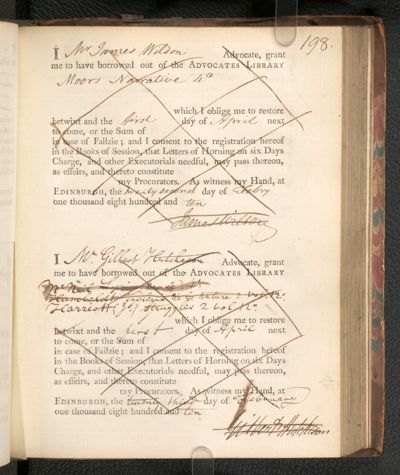 198.
I Mr James Wilson Advocate, grant
me to have borrowed out of the ADVOCATES LIBRARY
Moors Narrative 4to
which I oblige me to restore
betwixt and the first day of April next
to come, or the Sum of
in case of Failzie; and I consent to the registration hereof
in the Books of Session, that Letters of Horning on six Days
Charge, and other Executorials needful, may pass thereon,
as effeirs, and thereto constitute
my Procurators. As witness my Hand, at
EDINBURGH, the twenty second day of
one thousand eight hundred and ten
James Wilson
I Mr Gilbert Hutcheson Advocate, grant
me to have borrowed out of the ADVOCATES LIBRARY
McNeil
2 vol
Harriott (Jn) Struggles 2 vol
which I oblige me to restore
betwixt and the first day of April next
to come, or the Sum of
in case of Failzie; and I consent to the registration hereof
in the Books of Session, that Letters of Horning on six Days
Charge, and other Executorials needful, may pass thereon,
as effeirs, and thereto constitute
my Procurators. As witness my Hand, at
EDINBURGH, the twenty third day of February
one thousand eight hundred and ten
Gilbert Hutcheson